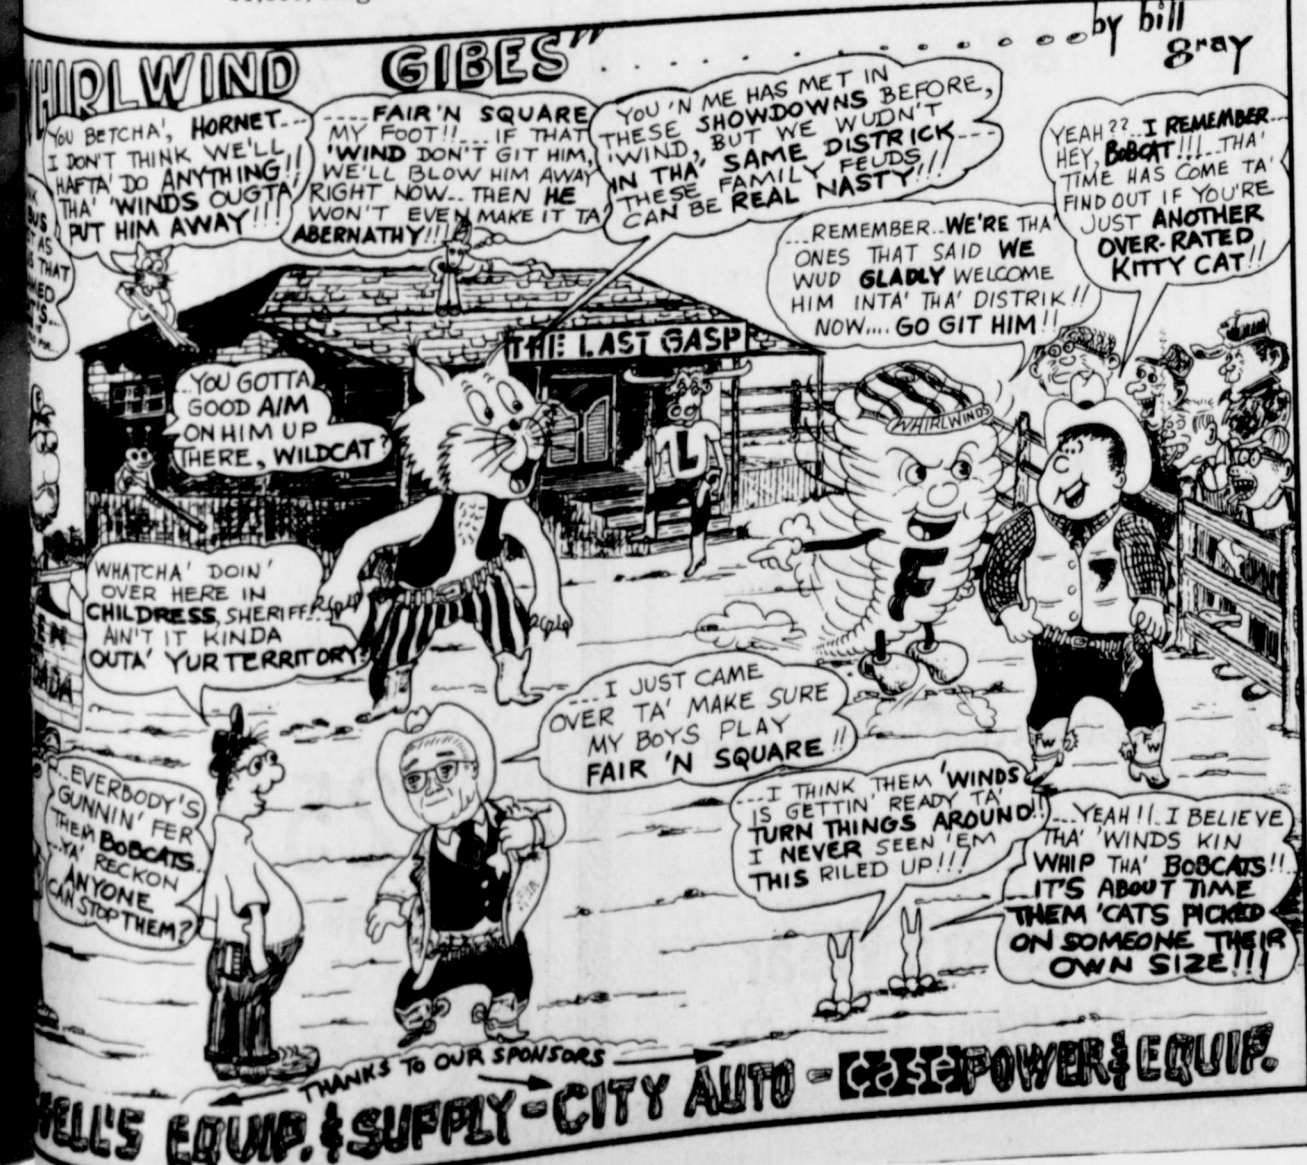 WHIRLWIND GIBES" . . . . . . . . . . . . by bill
gray
YOU BETCHA', HORNET...
I DON'T THINK WE'LL
HAFTA' DO ANYTHING!!
THA' 'WINDS OUGTA'
PUT HIM AWAY!!!
....FAIR 'N SQUARE
MY FOOT!!....IF THAT
'WIND DON'T GIT HIM,
WE'LL BLOW HIM AWAY
RIGHT NOW... THEN HE
WON'T EVEN MAKE IT TA'
ABERNATHY!!
YOU 'N ME HAS MET IN
THESE SHOWDOWNS BEFORE,
'WIND, BUT WE WUDN'T
IN THA' SAME DISTRICK----
THESE FAMILY FEUDS
CAN BE REAL NASTY!!!
...REMEMBER..WE'RE THA'
ONES THAT SAID WE
WUD GLADLY WELCOME
HIM INTA' THA' DISTRIK!!
NOW.... GO GIT HIM!!
YEAH?? ..I REMEMBER...
HEY, BOBCAT!!!...THA'
TIME HAS COME TA'
FIND OUT IF YOU'RE
JUST ANOTHER
OVER-RATED
KITTY CAT!!
BUS
AS
THAT
THE LAST GASP
..YOU GOTTA
GOOD AIM
ON HIM UP
THERE, WILDCAT?
WHIRLWINDS
L
F
FW FW
WHATCHA' DOIN'
OVER HERE IN
CHILDRESS, SHERIFF...
AIN'T IT KINDA
OUTA' YUR TERRITORY?
....I JUST CAME
OVER TA' MAKE SURE
MY BOYS PLAY
FAIR 'N SQUARE!!
...EVERBODY'S
GUNNIN' FER
THEM BOBCATS...
..YA' RECKON
ANYONE
CAN STOP THEM?
....I THINK THEM 'WINDS
IS GETTIN' READY TA'
TURN THINGS AROUND!!
I NEVER SEEN 'EM
THIS RILED UP!!!
....YEAH!!.I BELIEVE
THA' 'WINDS KIN
WHIP THA' BOBCATS!!
..IT'S ABOUT TIME
THEM 'CATS PICKED
ON SOMEONE THEIR
OWN SIZE!!!
THANKS TO OUR SPONSORS
ELL'S EQUIP. & SUPPLY - CITY AUTO - CASE POWER & EQUIP.